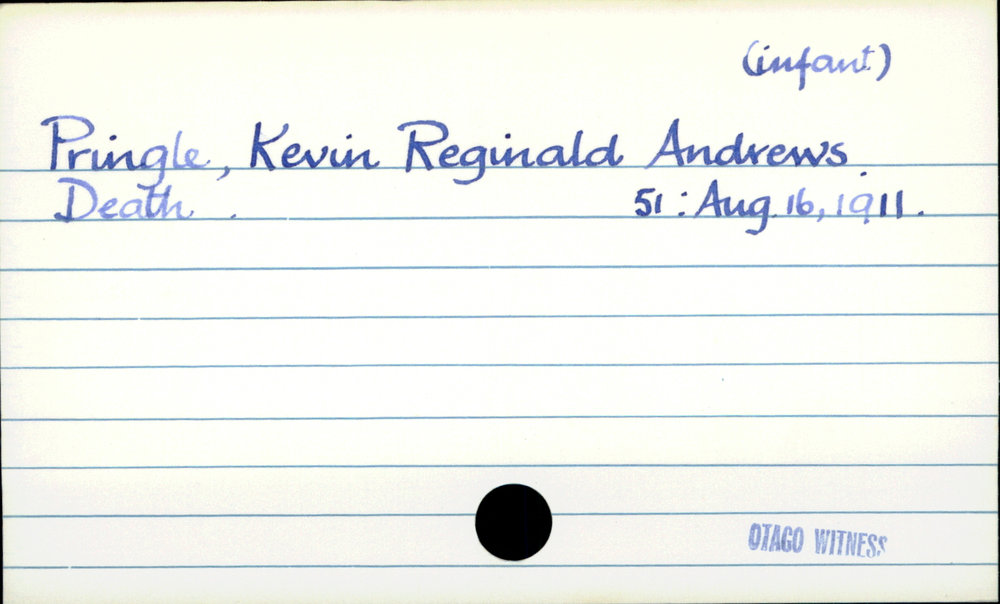 (infant)
Pringle, Kevin Reginald Andrews.
Death. 51: Aug. 16, 1911.
OTAGO WITNESS